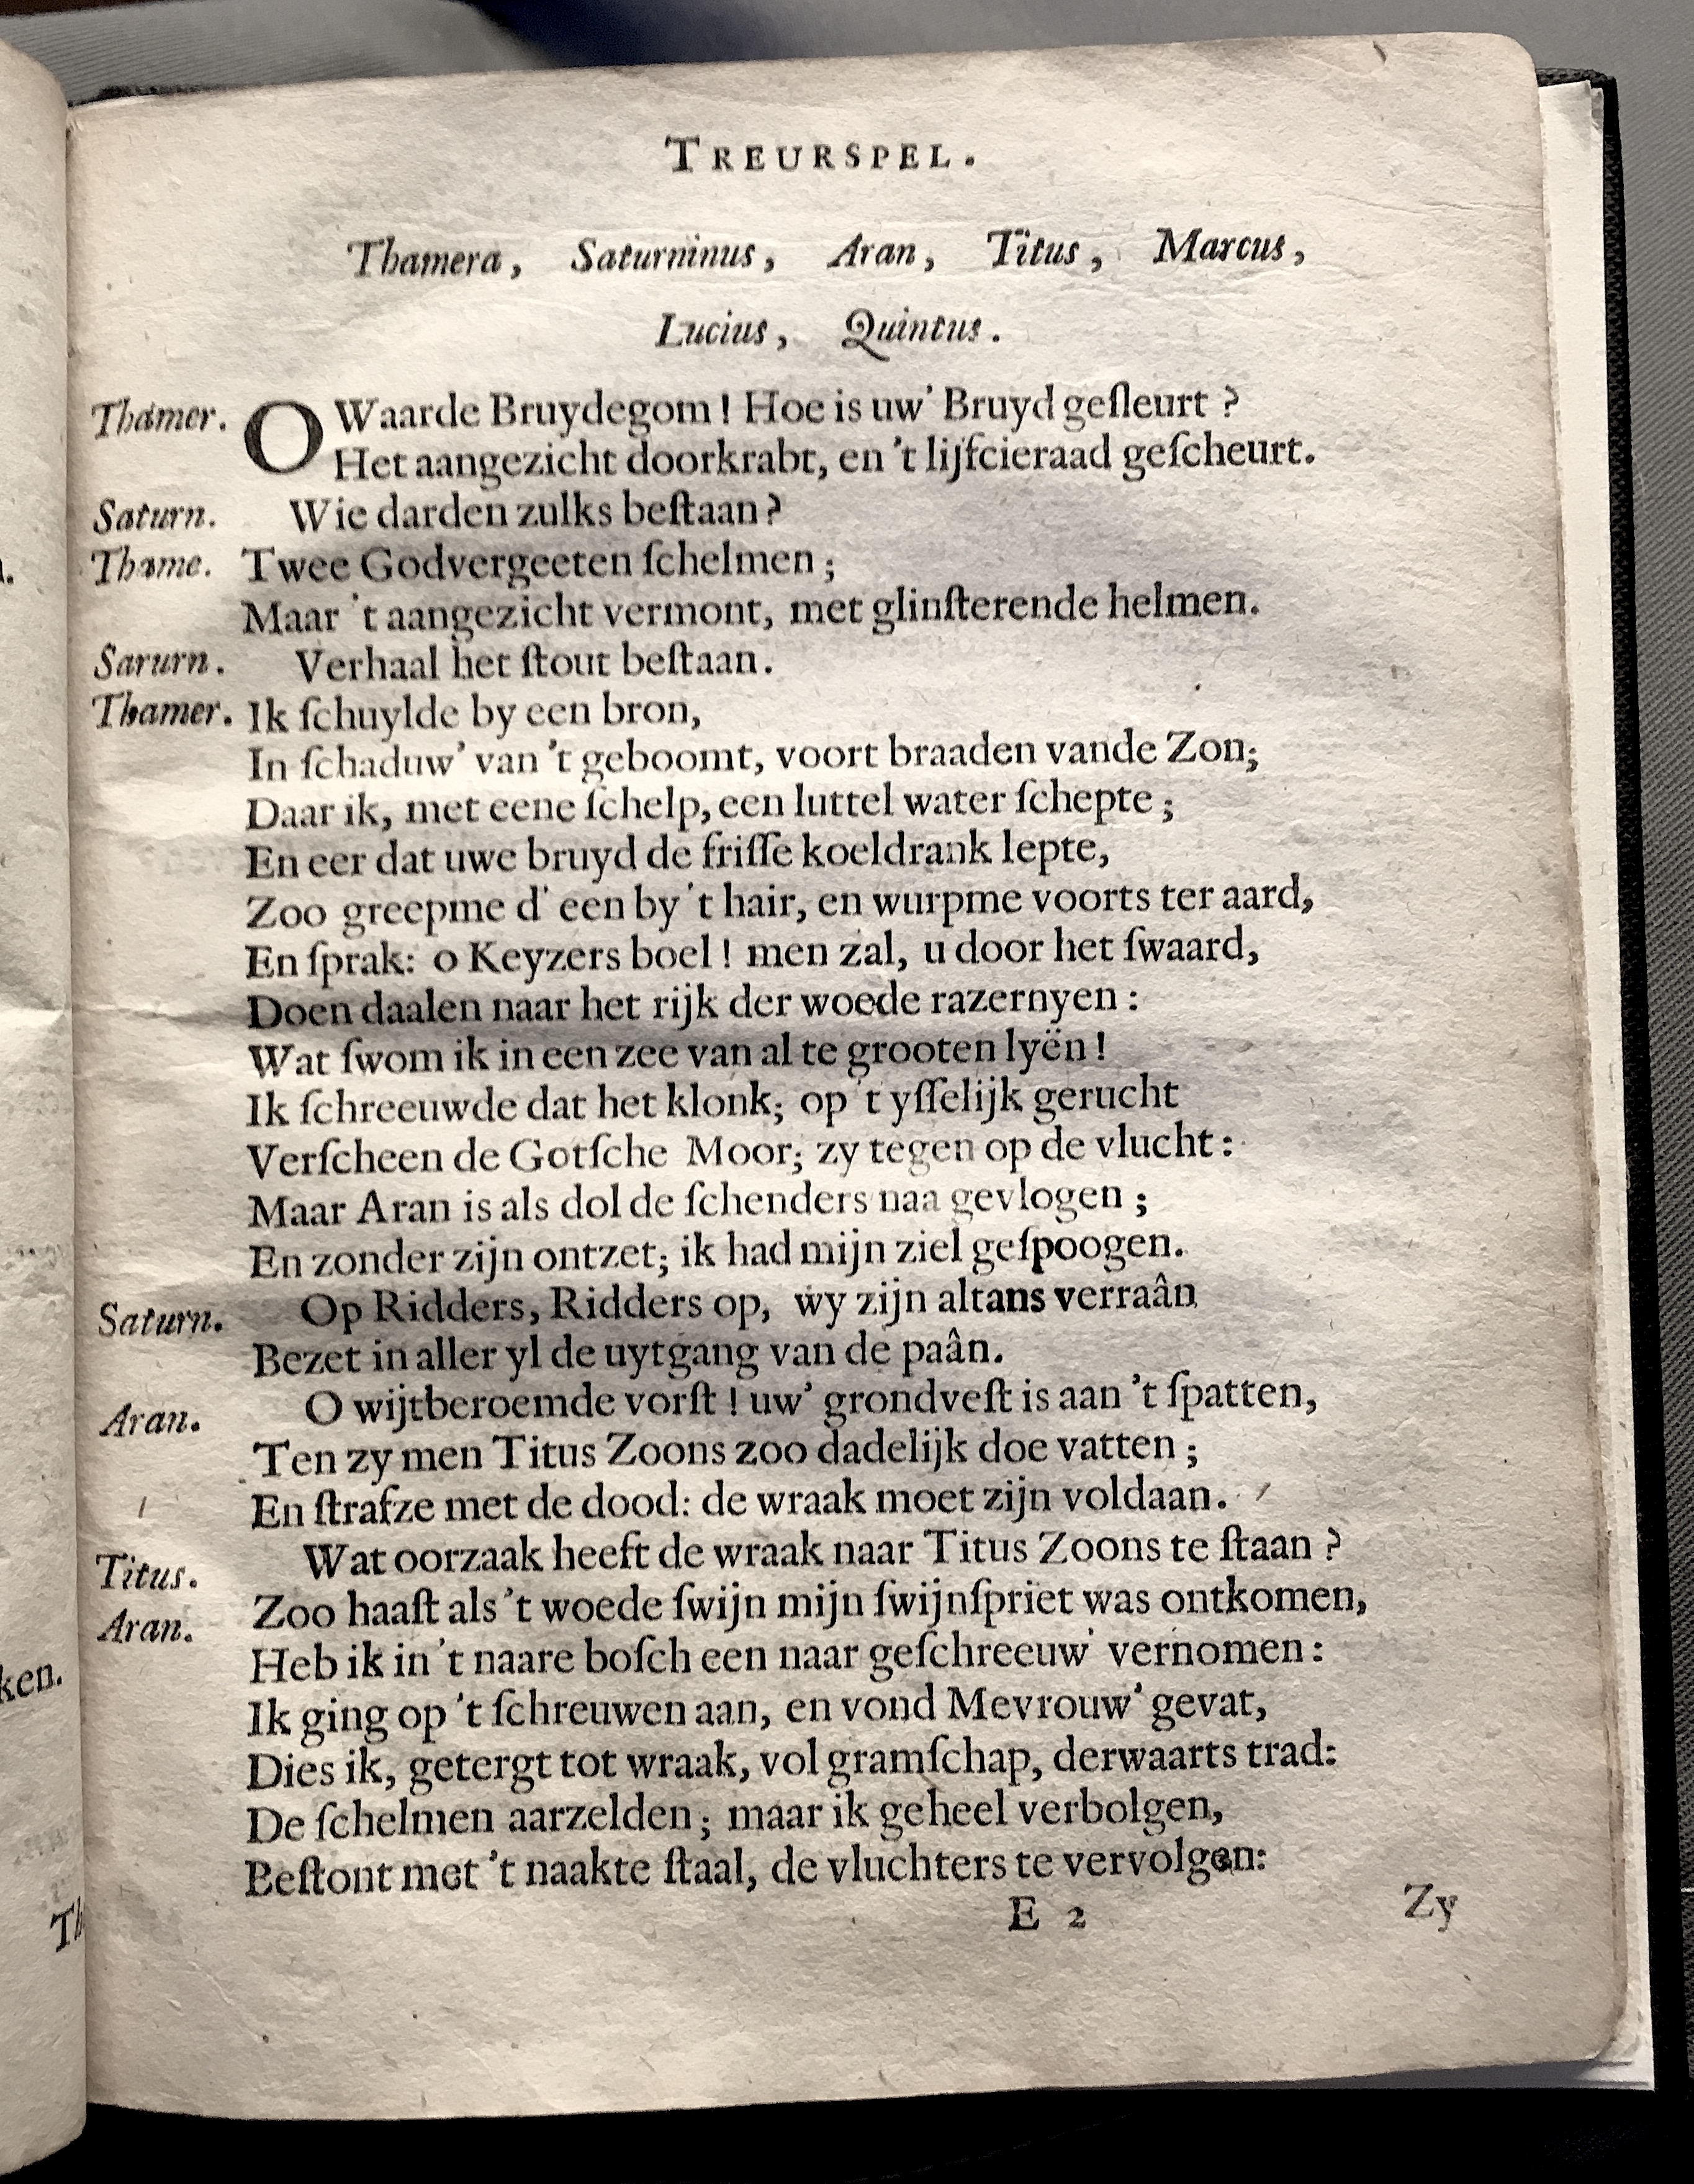 TREURSPEL.
Thamera, Saturninus, Aran, Titus, Marcus,
Lucius, Quintus.
Thamer. O Waarde Bruydegom! Hoe is uw' Bruyd geſleurt?
Het aangezicht doorkrabt, en 't lijfcieraad geſcheurt.
Saturn. Wie darden zulks beſtaan?
Thame. Twee Godvergeeten ſchelmen;
Maar 't aangezicht vermont, met glinſterende helmen.
Sarurn. Verhaal het ſtout beſtaan.
Thamer. Ik ſchuylde by een bron,
In ſchaduw' van 't geboomt, voort braaden vande Zon;
Daar ik, met eene ſchelp, een luttel water ſchepte;
En eer dat uwe bruyd de friſſe koeldrank lepte,
Zoo greepme d' een by 't hair, en wurpme voorts ter aard,
En ſprak: o Keyzers boel! men zal, u door het ſwaard,
Doen daalen naar het rijk der woede razernyen:
Wat ſwom ik in een zee van al te grooten lyën!
Ik ſchreeuwde dat het klonk; op 't yſſelijk gerucht
Verſcheen de Gotſche Moor; zy tegen op de vlucht:
Maar Aran is als dol de ſchenders naa gevlogen;
En zonder zijn ontzet; ik had mijn ziel geſpoogen.
Saturn. Op Ridders, Ridders op, wy zijn altans verraân
Bezet in aller yl de uytgang van de paân.
Aran. O wijtberoemde vorſt! uw' grondveſt is aan 't ſpatten,
Ten zy men Titus Zoons zoo dadelijk doe vatten;
En ſtrafze met de dood: de wraak moet zijn voldaan.
Titus. Wat oorzaak heeft de wraak naar Titus Zoons te ſtaan?
Aran. Zoo haaſt als 't woede ſwijn mijn ſwijnſpriet was ontkomen,
Heb ik in 't naare boſch een naar geſchreeuw' vernomen:
Ik ging op 't ſchreuwen aan, en vond Mevrouw' gevat,
Dies ik, getergt tot wraak, vol gramſchap, derwaarts trad:
De ſchelmen aarzelden; maar ik geheel verbolgen,
Beſtont met 't naakte ſtaal, de vluchters te vervolgen:
E 2 Zy
ken.
Th